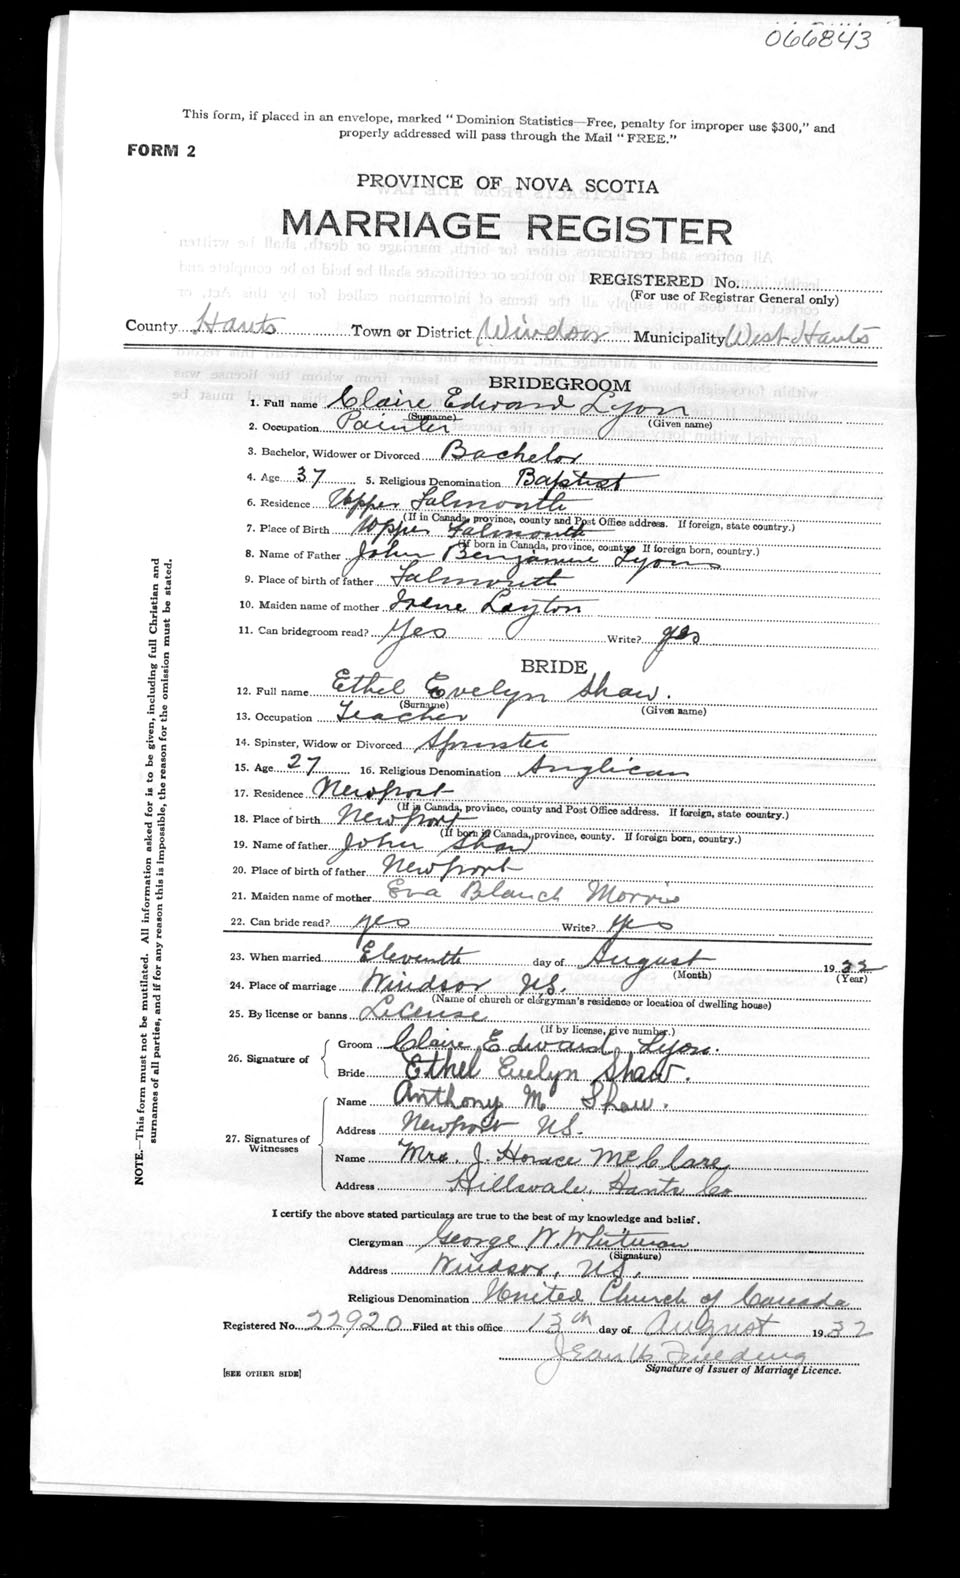 066843
This form, if placed in an envelope, marked "Dominion Statistics—Free, penalty for improper use $300," and
properly addressed will pass through the Mail "FREE."
FORM 2
PROVINCE OF NOVA SCOTIA
MARRIAGE REGISTER
REGISTERED No.
(For use of Registrar General only)
County Hants Town or District Windsor Municipality West Hants
BRIDEGROOM
1. Full name Claire Edward Lyon
(Surname) (Given name)
2. Occupation Painter
3. Bachelor, Widower or Divorced Bachelor
4. Age 37 5. Religious Denomination Baptist
6. Residence Upper Falmouth
(If in Canada, province, county and Post Office address. If foreign, state country.)
7. Place of Birth Upper Falmouth
(If born in Canada, province, county. If foreign born, country.)
8. Name of Father John Benjamin Lyons
9. Place of birth of father Falmouth
10. Maiden name of mother Irene Layton
11. Can bridegroom read? Yes Write? yes
BRIDE
12. Full name Ethel Evelyn Shaw.
(Surname) (Given name)
13. Occupation Teacher
14. Spinster, Widow or Divorced Spinster
15. Age 27 16. Religious Denomination Anglican
17. Residence Newport
(If in Canada, province, county and Post Office address. If foreign, state country.)
18. Place of birth Newport
(If born in Canada, province, county. If foreign born, country.)
19. Name of father John Shaw
20. Place of birth of father Newport
21. Maiden name of mother Eva Blanch Morris
22. Can bride read? yes Write? yes
23. When married Eleventh day of August 1932
(Month) (Year)
24. Place of marriage Windsor N.S.
(Name of church or clergyman's residence or location of dwelling house)
25. By license or banns License
(If by license, give number.)
26. Signature of Groom Claire Edward Lyon.
Bride Ethel Evelyn Shaw.
27. Signatures of Witnesses Name Anthony M. Shaw.
Address Newport N.S.
Name Mrs. J. Horace McClare
Address Hillsvale, Hants Co
I certify the above stated particulars are true to the best of my knowledge and belief.
Clergyman George W. Whitman
(Signature)
Address Windsor, N.S.
Religious Denomination United Church of Canada
Registered No. 22920 Filed at this office 13th day of August 1932
Jean Fielding
Signature of Issuer of Marriage Licence.
[SEE OTHER SIDE]
NOTE.—This form must not be mutilated. All information asked for is to be given, including full Christian and
surnames of all parties, and if for any reason this is impossible, the reason for the omission must be stated.